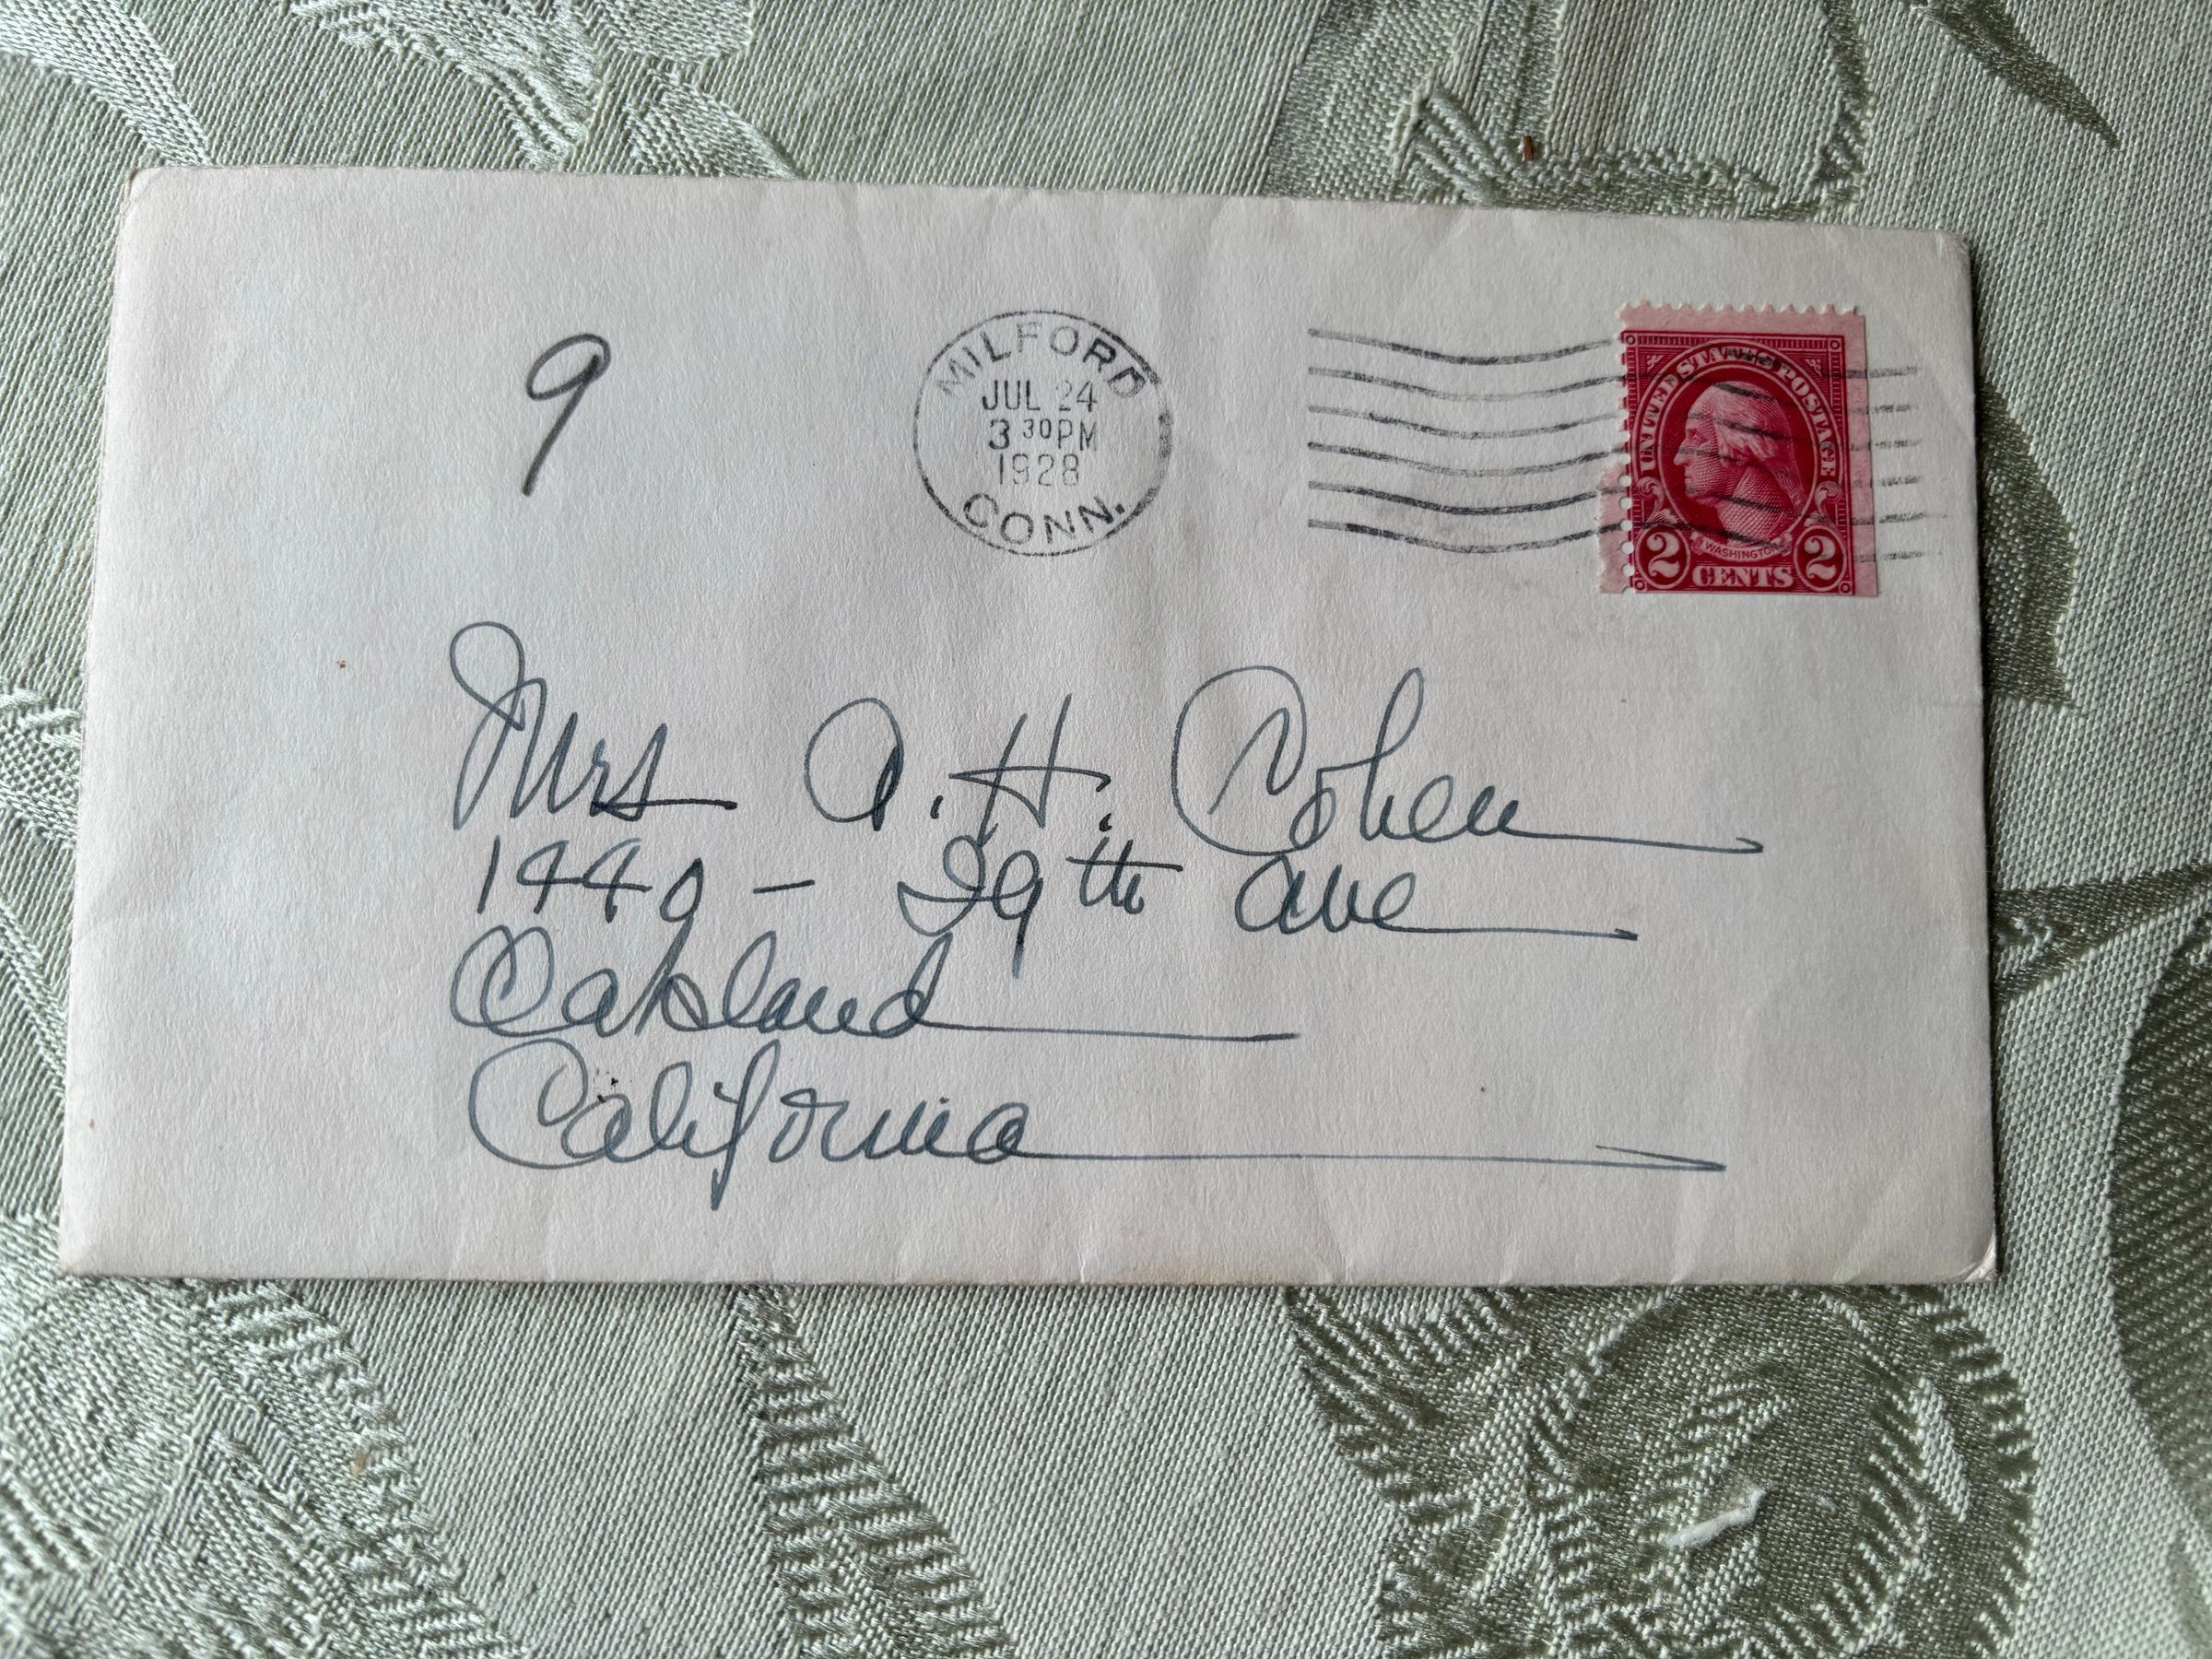 9
MILFORD
JUL 24
3 30 PM
1928
CONN.
UNITED STATES POSTAGE
WASHINGTON
2 CENTS 2
Mrs A. H. Cohen
1449 - 29th Ave
Oakland
California